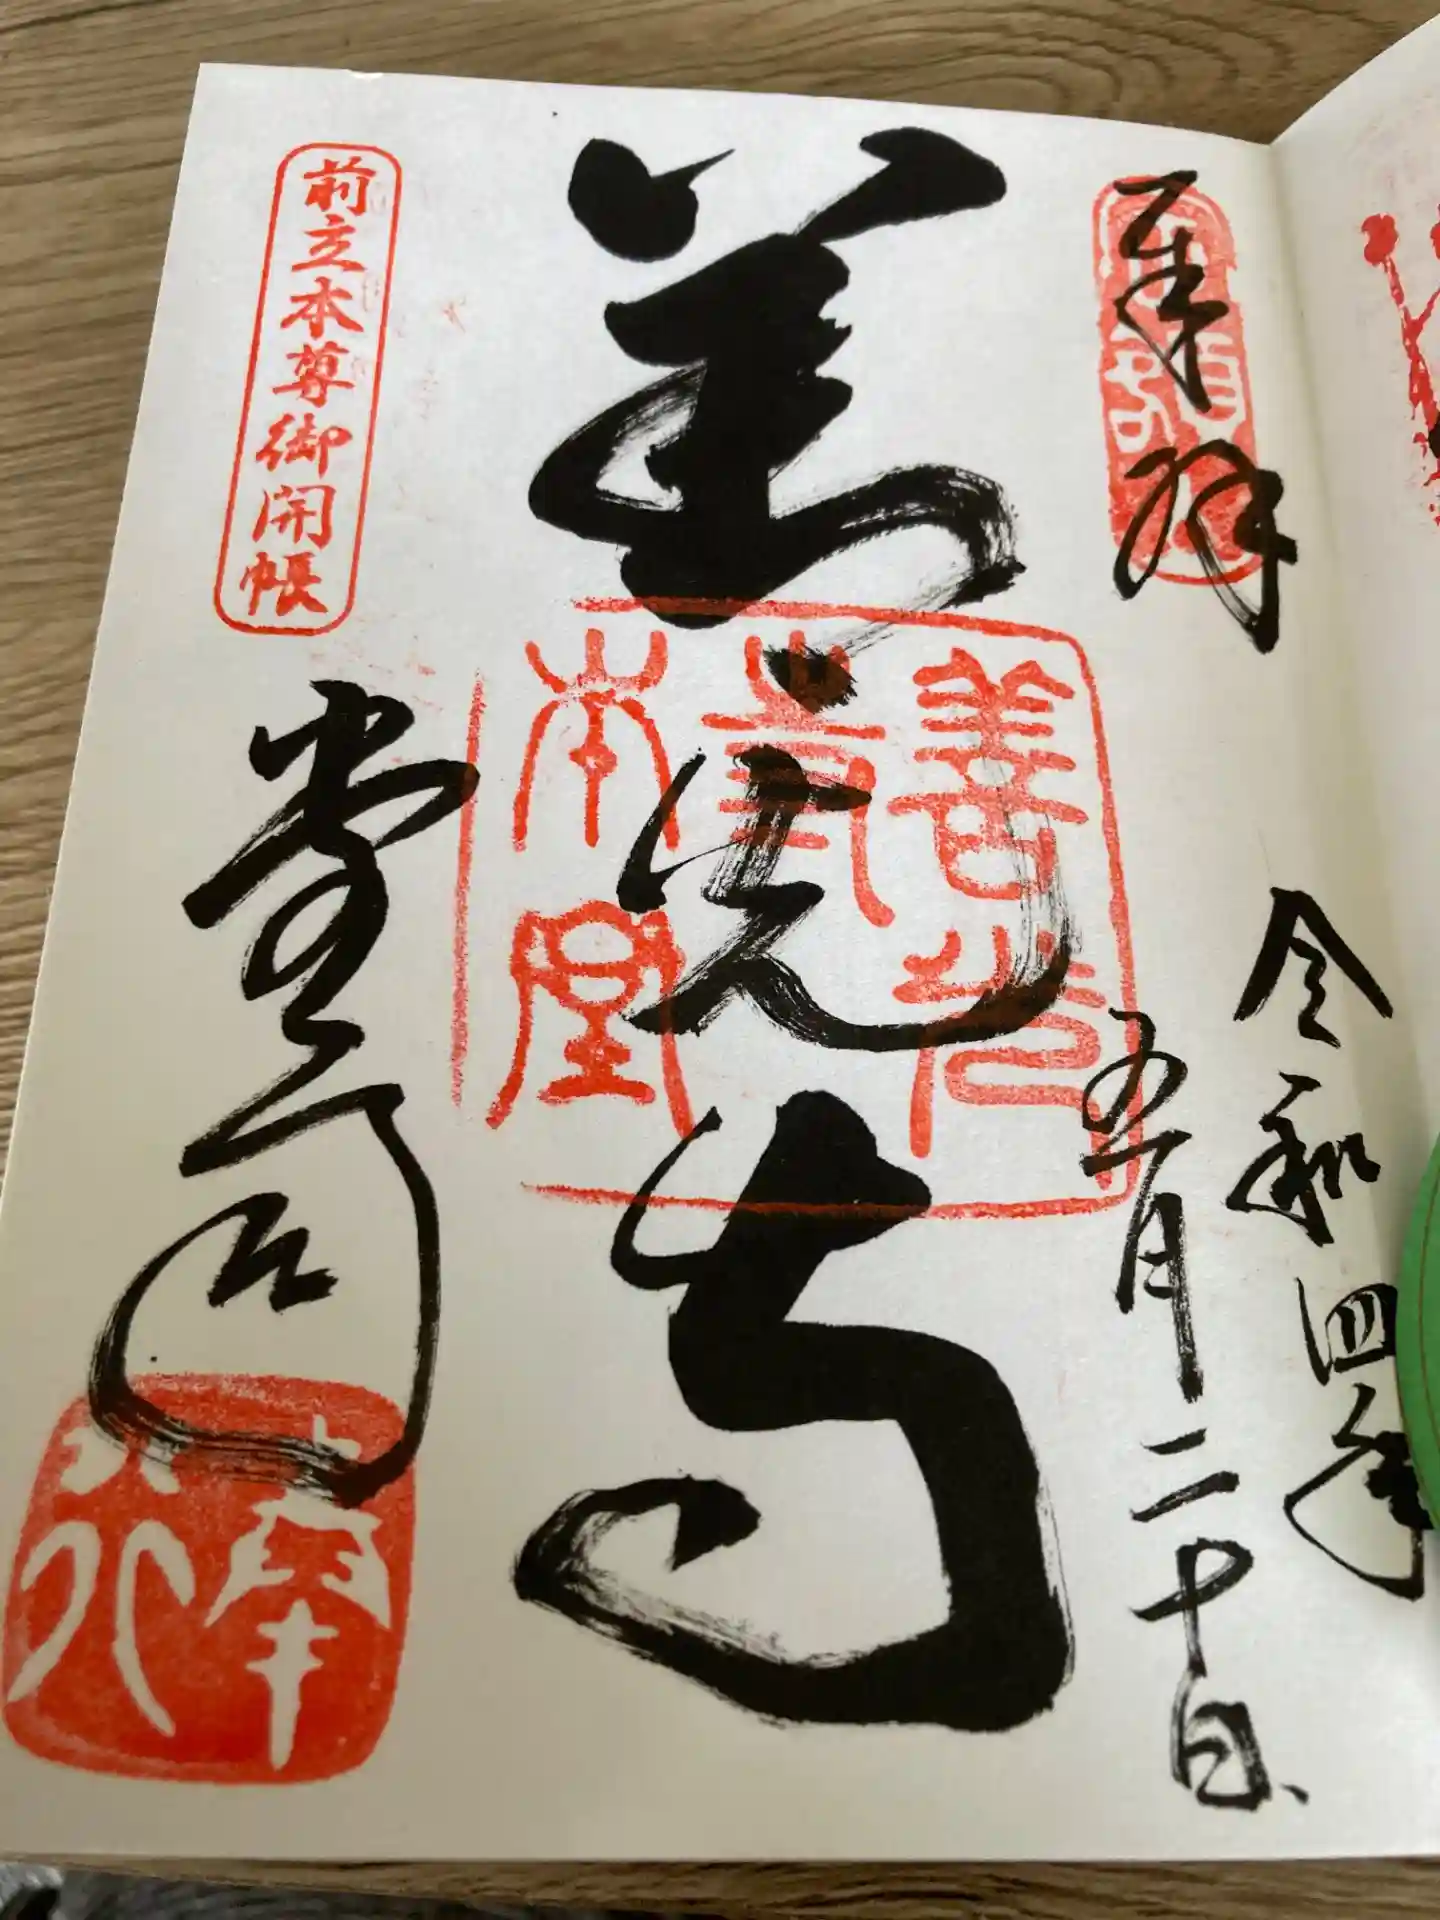 奉拝
令和四年
五月二十日
善光寺
善光
寺
本堂
前立本尊御開帳
堂司